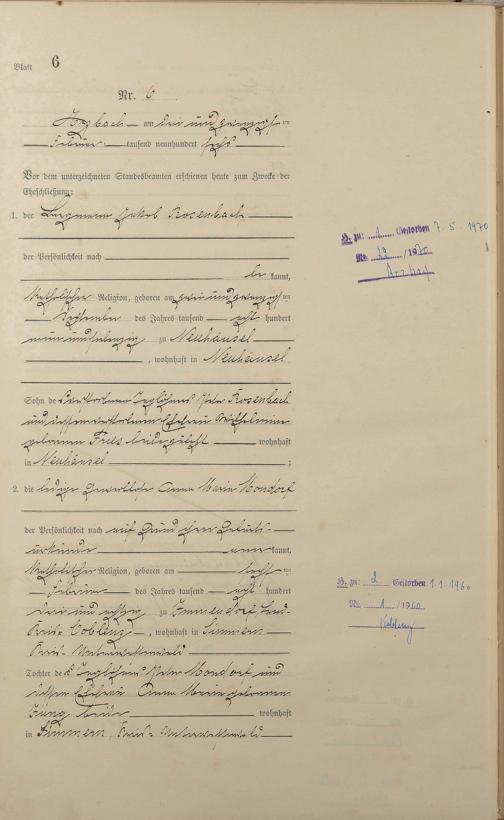 Blatt 6
Nr. 6
Arzbach am drei und zwanzigsten
Februar tausend neunhundert sechs
Vor dem unterzeichneten Standesbeamten erschienen heute zum Zwecke der
Eheschließung:
1. der Bergmann Jakob Rosenbach
der Persönlichkeit nach
be kannt,
katholischer Religion, geboren am zwei und zwanzigsten
September des Jahres tausend acht hundert
zu Neuhäusel
, wohnhaft in Neuhäusel
Sohn des verstorbenen Taglöhners Peter Rosenbach
und dessen verstorbenen Ehefrau Wilhelmine
geborenen Fries beide zuletzt wohnhaft
in Neuhäusel ;
2. die ledige gewerblose Anna Maria Mondorf
der Persönlichkeit nach auf Grund ihrer Geburts-
urkunde aner kannt,
katholischer Religion, geboren am sechsten
Februar des Jahres tausend acht hundert
drei und achtzig zu Immendorf Land-
Kreis Coblenz , wohnhaft in Simmern
Kreis Unterwesterwald
Tochter des Taglöhners Peter Mondorf und
dessen Ehefrau Anna Maria geborenen
Jung beide wohnhaft
in Simmern, Kreis Unterwesterwald
H. zu: 1 Gestorben 7.5.1970
Nr. /1970
Arzbach
H. zu: 2 Gestorben 1.1.1960
Nr. 1 /1960
Koblenz